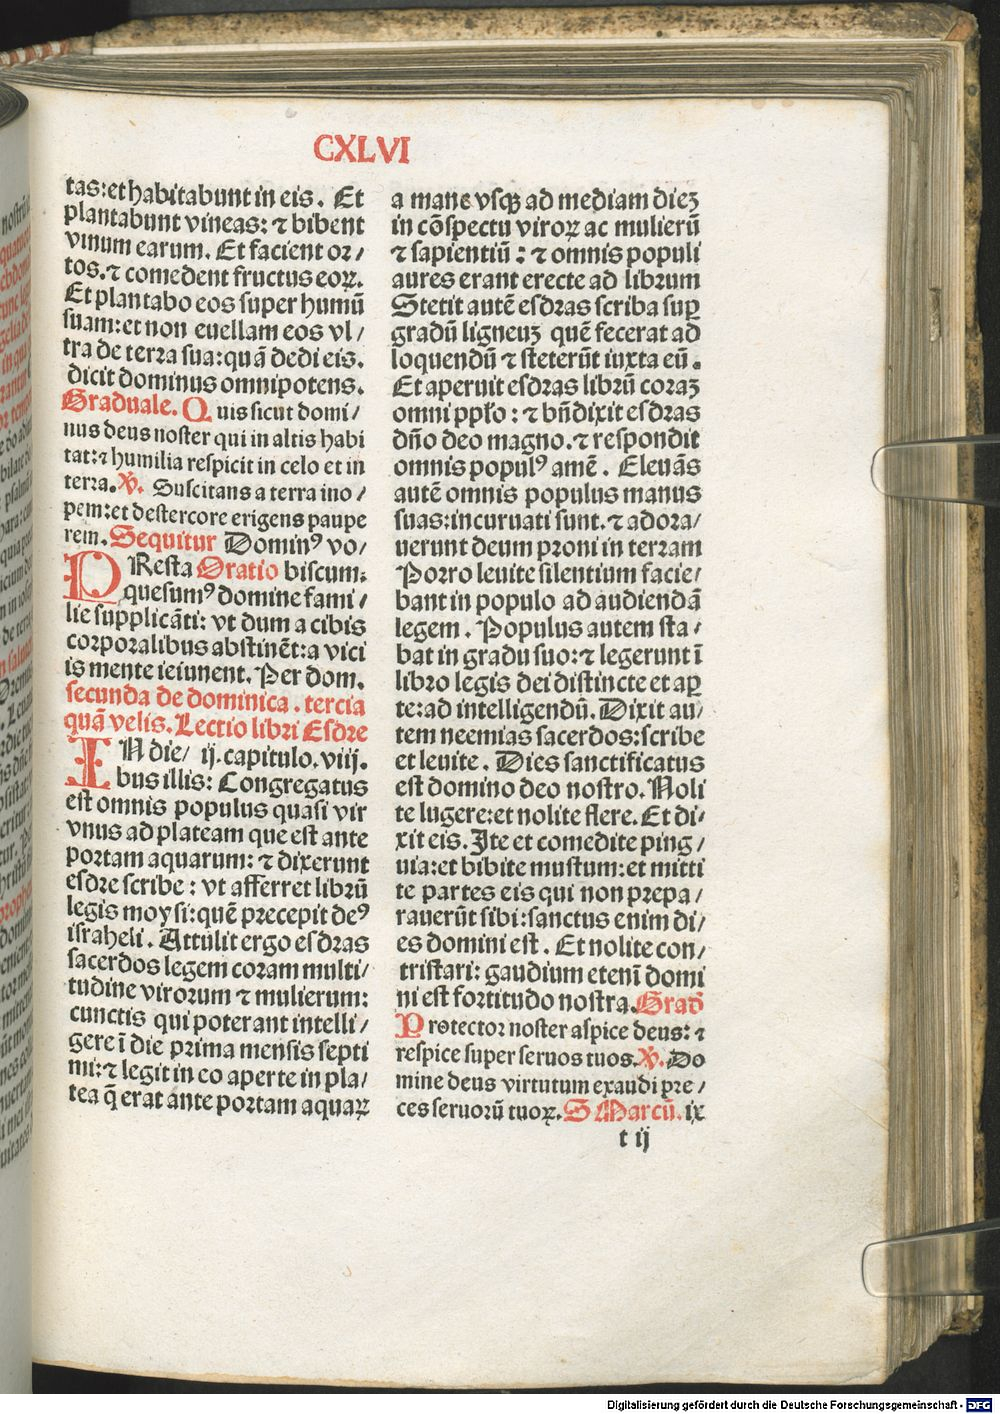 CXLVI
tas: et habitabunt in eis. Et
plantabunt vineas: ⁊ bibent
vinum earum. Et facient or/
tos. ⁊ comedent fructus eoꝝ.
Et plantabo eos super humū
suam: et non euellam eos vl/
tra de terra sua: quā dedi eis.
dicit dominus omnipotens.
Graduale. Quis sicut domi/
nus deus noster qui in altis habi
tat: ⁊ humilia respicit in celo et in
terra. ℣. Suscitans a terra ino/
pem: et de stercore erigens paupe
rem. Sequitur Dominꝰ vo/
PResta Oratio biscum:
quesumꝰ domine fami/
lie supplicāti: vt dum a cibis
corporalibus abstinēt: a vici
is mente ieiunent. Per dom.
secunda de dominica. tercia
quā velis. Lectio libri Esdre
IN die/ ij. capitulo. viij.
bus illis: Congregatus
est omnis populus quasi vir
vnus ad plateam que est ante
portam aquarum: ⁊ dixerunt
esdre scribe: vt afferret librū
legis moysi: quē precepit deꝰ
israheli. Attulit ergo esdras
sacerdos legem coram multi/
tudine virorum ⁊ mulierum:
cunctis qui poterant intelli/
gere ī die prima mensis septi
mi: ⁊ legit in eo aperte in pla/
tea q̄ erat ante portam aquaꝝ
a mane vsqꝫ ad mediam dieꝫ
in cōspectu viroꝝ ac mulierū
⁊ sapientiū: ⁊ omnis populi
aures erant erecte ad librum
Stetit autē esdras scriba suꝑ
gradū ligneuꝫ quē fecerat ad
loquendū ⁊ steterūt iuxta eū.
Et aperuit esdras librū coraꝫ
omni pplo: ⁊ bn̄dixit esdras
dn̄o deo magno. ⁊ respondit
omnis populꝰ amē. Eleuās
autē omnis populus manus
suas: incuruati sunt. ⁊ adora/
uerunt deum proni in terram
Porro leuite silentium facie/
bant in populo ad audiendā
legem. Populus autem sta/
bat in gradu suo: ⁊ legerunt ī
libro legis dei distincte et aꝑ
te: ad intelligendū. Dixit au/
tem neemias sacerdos: scribe
et leuite. Dies sanctificatus
est domino deo nostro. Noli
te lugere: et nolite flere. Et di/
xit eis. Ite et comedite ping/
uia: et bibite mustum: et mitti
te partes eis qui non prepa/
rauerūt sibi: sanctus enim di/
es domini est. Et nolite con/
tristari: gaudium etenī domi
ni est fortitudo nostra. Grad̄
Protector noster aspice deus: ⁊
respice super seruos tuos. ℣. Do
mine deus virtutum exaudi pre/
ces seruorū tuoꝝ. S Marcū. ix
t ij
Digitalisierung gefördert durch die Deutsche Forschungsgemeinschaft - DFG